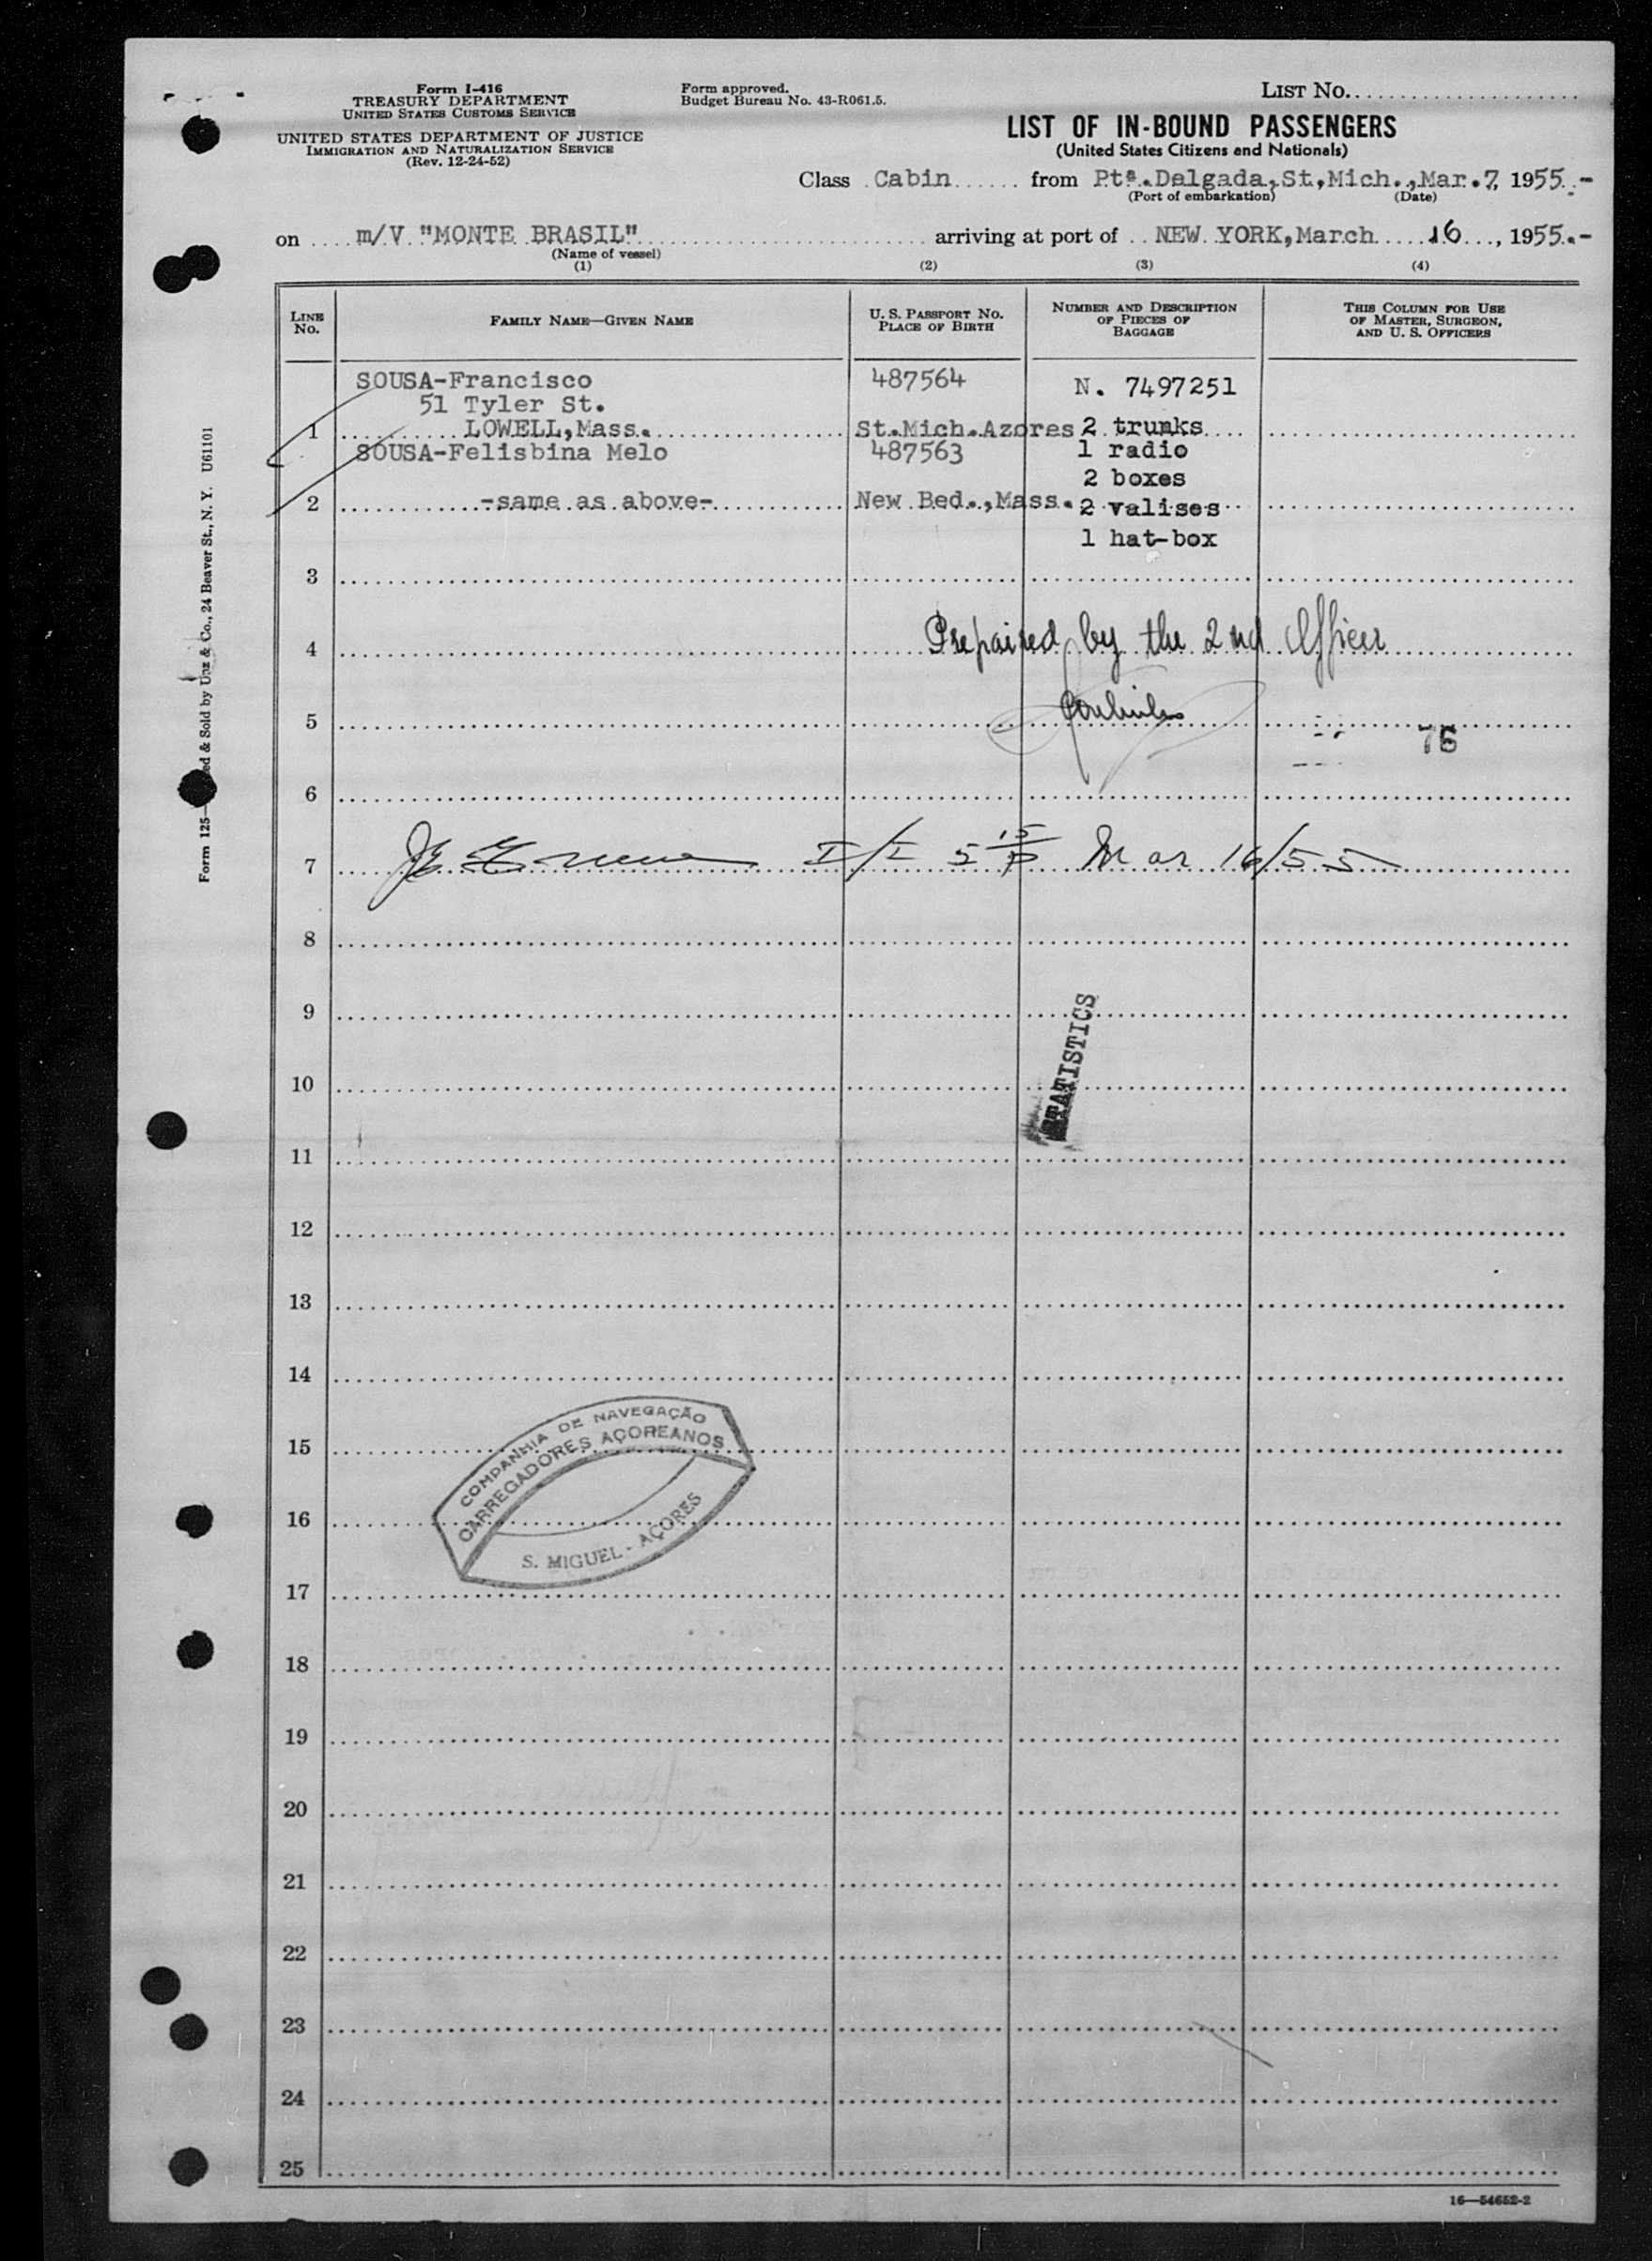 Form I-416
TREASURY DEPARTMENT
UNITED STATES CUSTOMS SERVICE
UNITED STATES DEPARTMENT OF JUSTICE
IMMIGRATION AND NATURALIZATION SERVICE
(Rev. 12-24-52)
Form approved.
Budget Bureau No. 43-R061.5.
LIST No.
LIST OF IN-BOUND PASSENGERS
(United States Citizens and Nationals)
Class Cabin from Ptª.Delgada,St,Mich.,Mar.7, 1955.-
(Port of embarkation) (Date)
on m/V "MONTE BRASIL" arriving at port of NEW YORK,March 16, 1955.-
(Name of vessel)
(1) (2) (3) (4)
LINE No. FAMILY NAME—GIVEN NAME U. S. PASSPORT No. PLACE OF BIRTH NUMBER AND DESCRIPTION OF PIECES OF BAGGAGE THIS COLUMN FOR USE OF MASTER, SURGEON, AND U. S. OFFICERS
SOUSA-Francisco 487564 N. 7497251
51 Tyler St.
1 LOWELL,Mass. St.Mich.Azores 2 trunks
SOUSA-Felisbina Melo 487563 1 radio
2 boxes
2 -same as above- New Bed.,Mass. 2 valises
1 hat-box
3
4 Prepaired by the 2nd Officer
5
76
6
7 I/I 5 15/P Mar 16/55
8
9
STATISTICS
10
11
12
13
14
COMPANHIA DE NAVEGAÇÃO
CARREGADORES AÇOREANOS
S. MIGUEL - AÇORES
15
16
17
18
19
20
21
22
23
24
25
16—54652-2
U61101